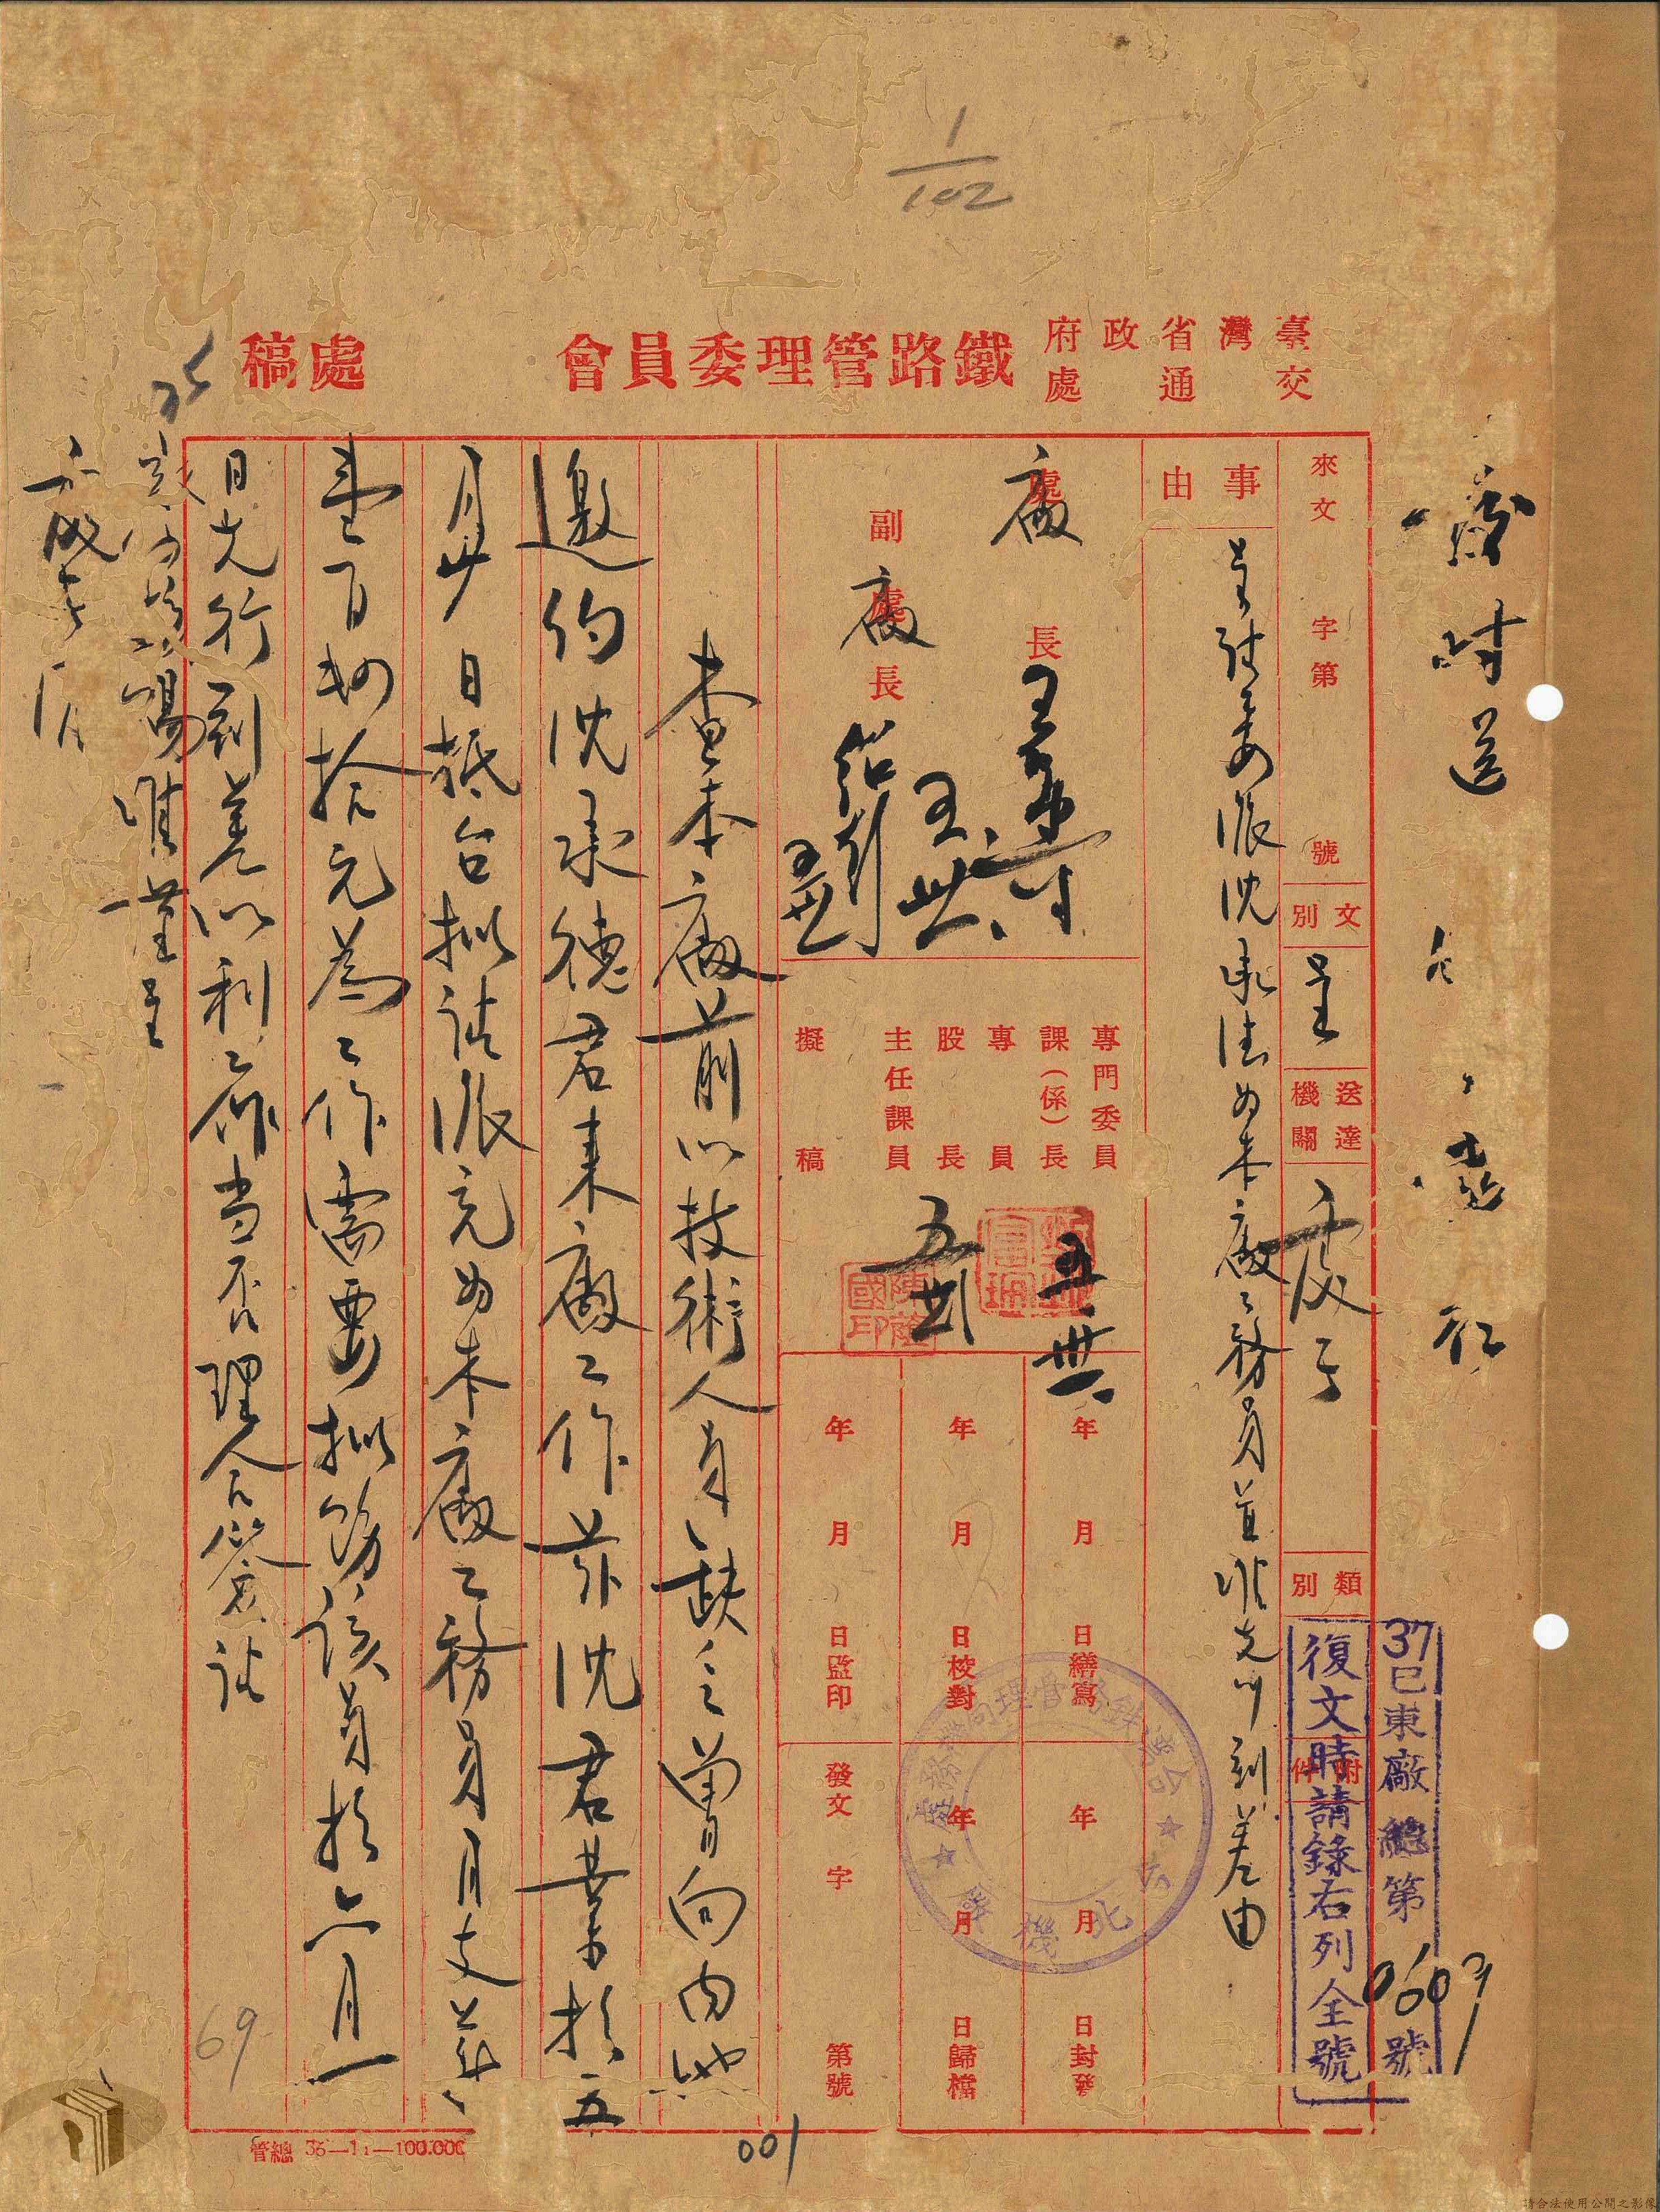 1/102
臺灣省政府交通處
鐵路管理委員會
處稿
來文 字第 號
文別 呈
送達機關 處
類別
附件
37巳東廠總第0607號
復文時請錄右列全號
事由
呈請委派沈承德為本廠工務員並准先行到差由
處長
廠
副處長
廠
專門委員
課(係)長
專員
股長
主任課員
擬稿
年 月 日繕寫
年 月 日校對
年 月 日監印
年 月 日封發
年 月 日歸檔
發文 字 第 號
查本廠前以技術人員缺乏曾向內地
邀約沈承德君來廠工作茲沈君業於五
月廿日抵台擬請派充為本廠工務員月支薪
壹百捌拾元為工作需要擬飭該員於六月一
日先行到差以利工作當否理合簽請
准謹呈
管總 36—11—100.000
001
69
請合法使用公開之影像